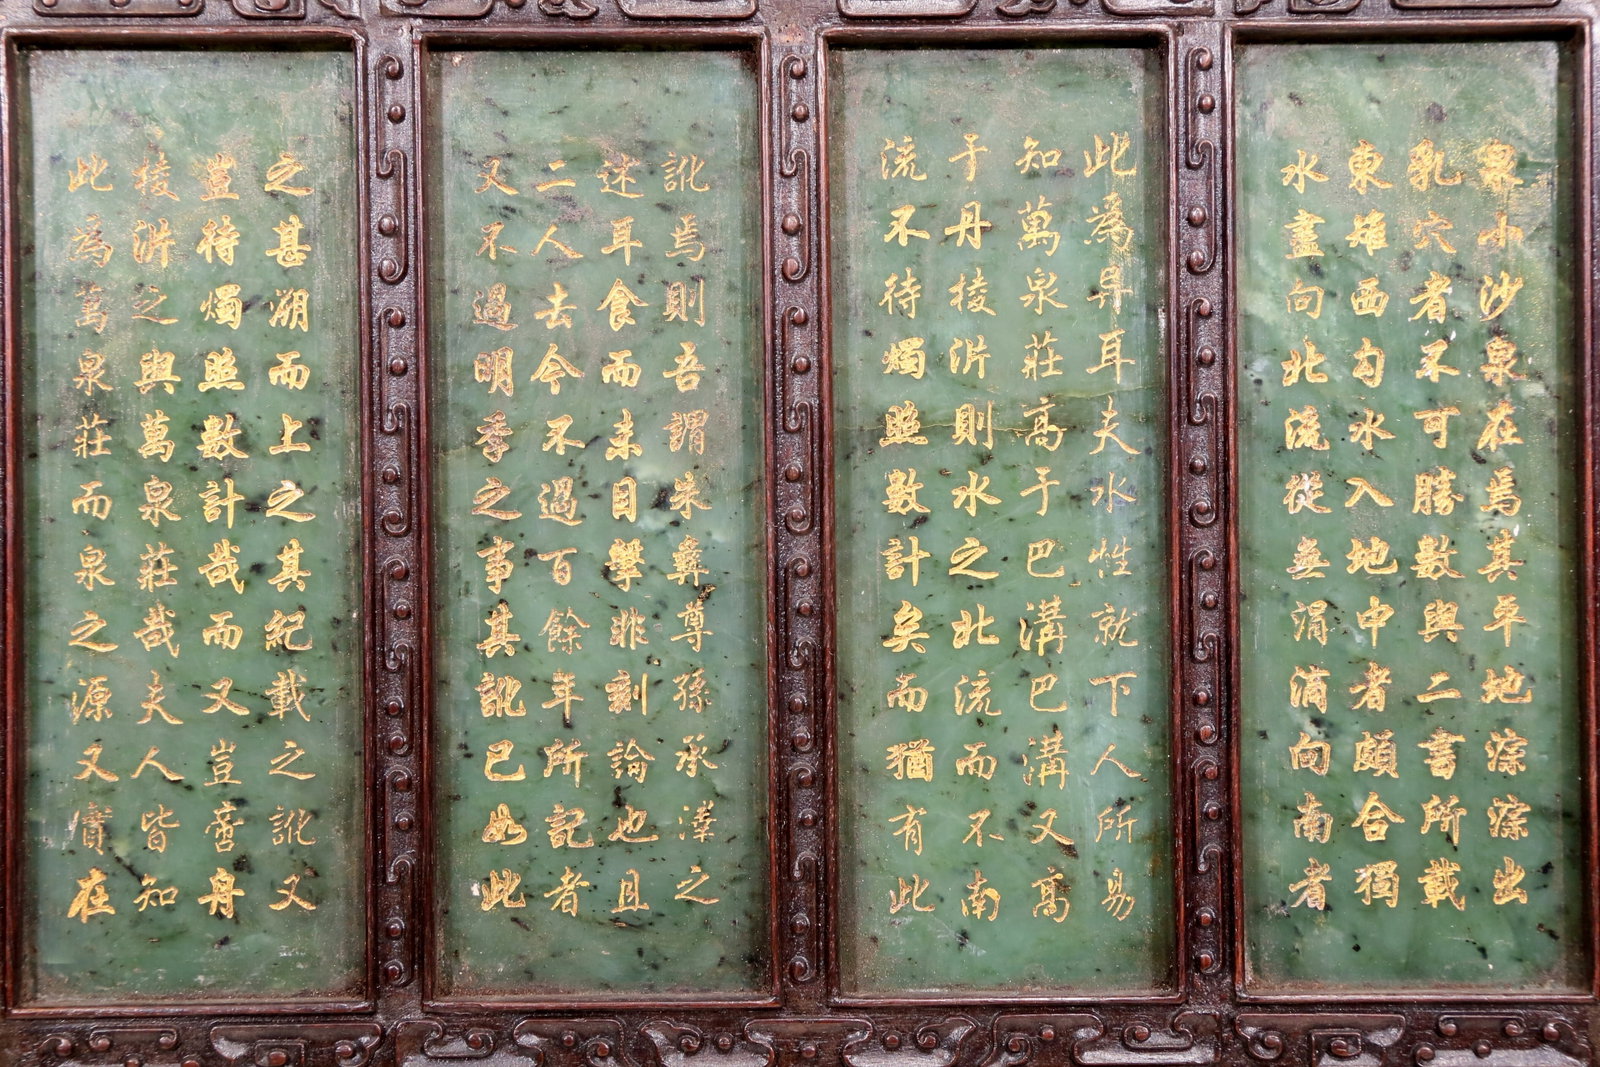 泉小沙泉在焉其平地淙淙出
乳穴者不可勝數與二書所載
東雉西勾水入地中者頗合獨
水盡向北流從無涓滴向南者
此為異耳夫水性就下人所易
知萬泉莊高于巴溝巴溝又高
于丹棱沜則水之北流而不南
流不待燭照數計矣而猶有此
訛焉則吾謂朱彝尊孫承澤之
述耳食而未目擊非刻論也且
二人去今不過百餘年所記者
又不過明季之事其訛已如此
之甚溯而上之其紀載之訛又
豈待燭照數計哉而又豈啻丹
棱沜之與萬泉莊哉夫人皆知
此為萬泉莊而泉之源又實在